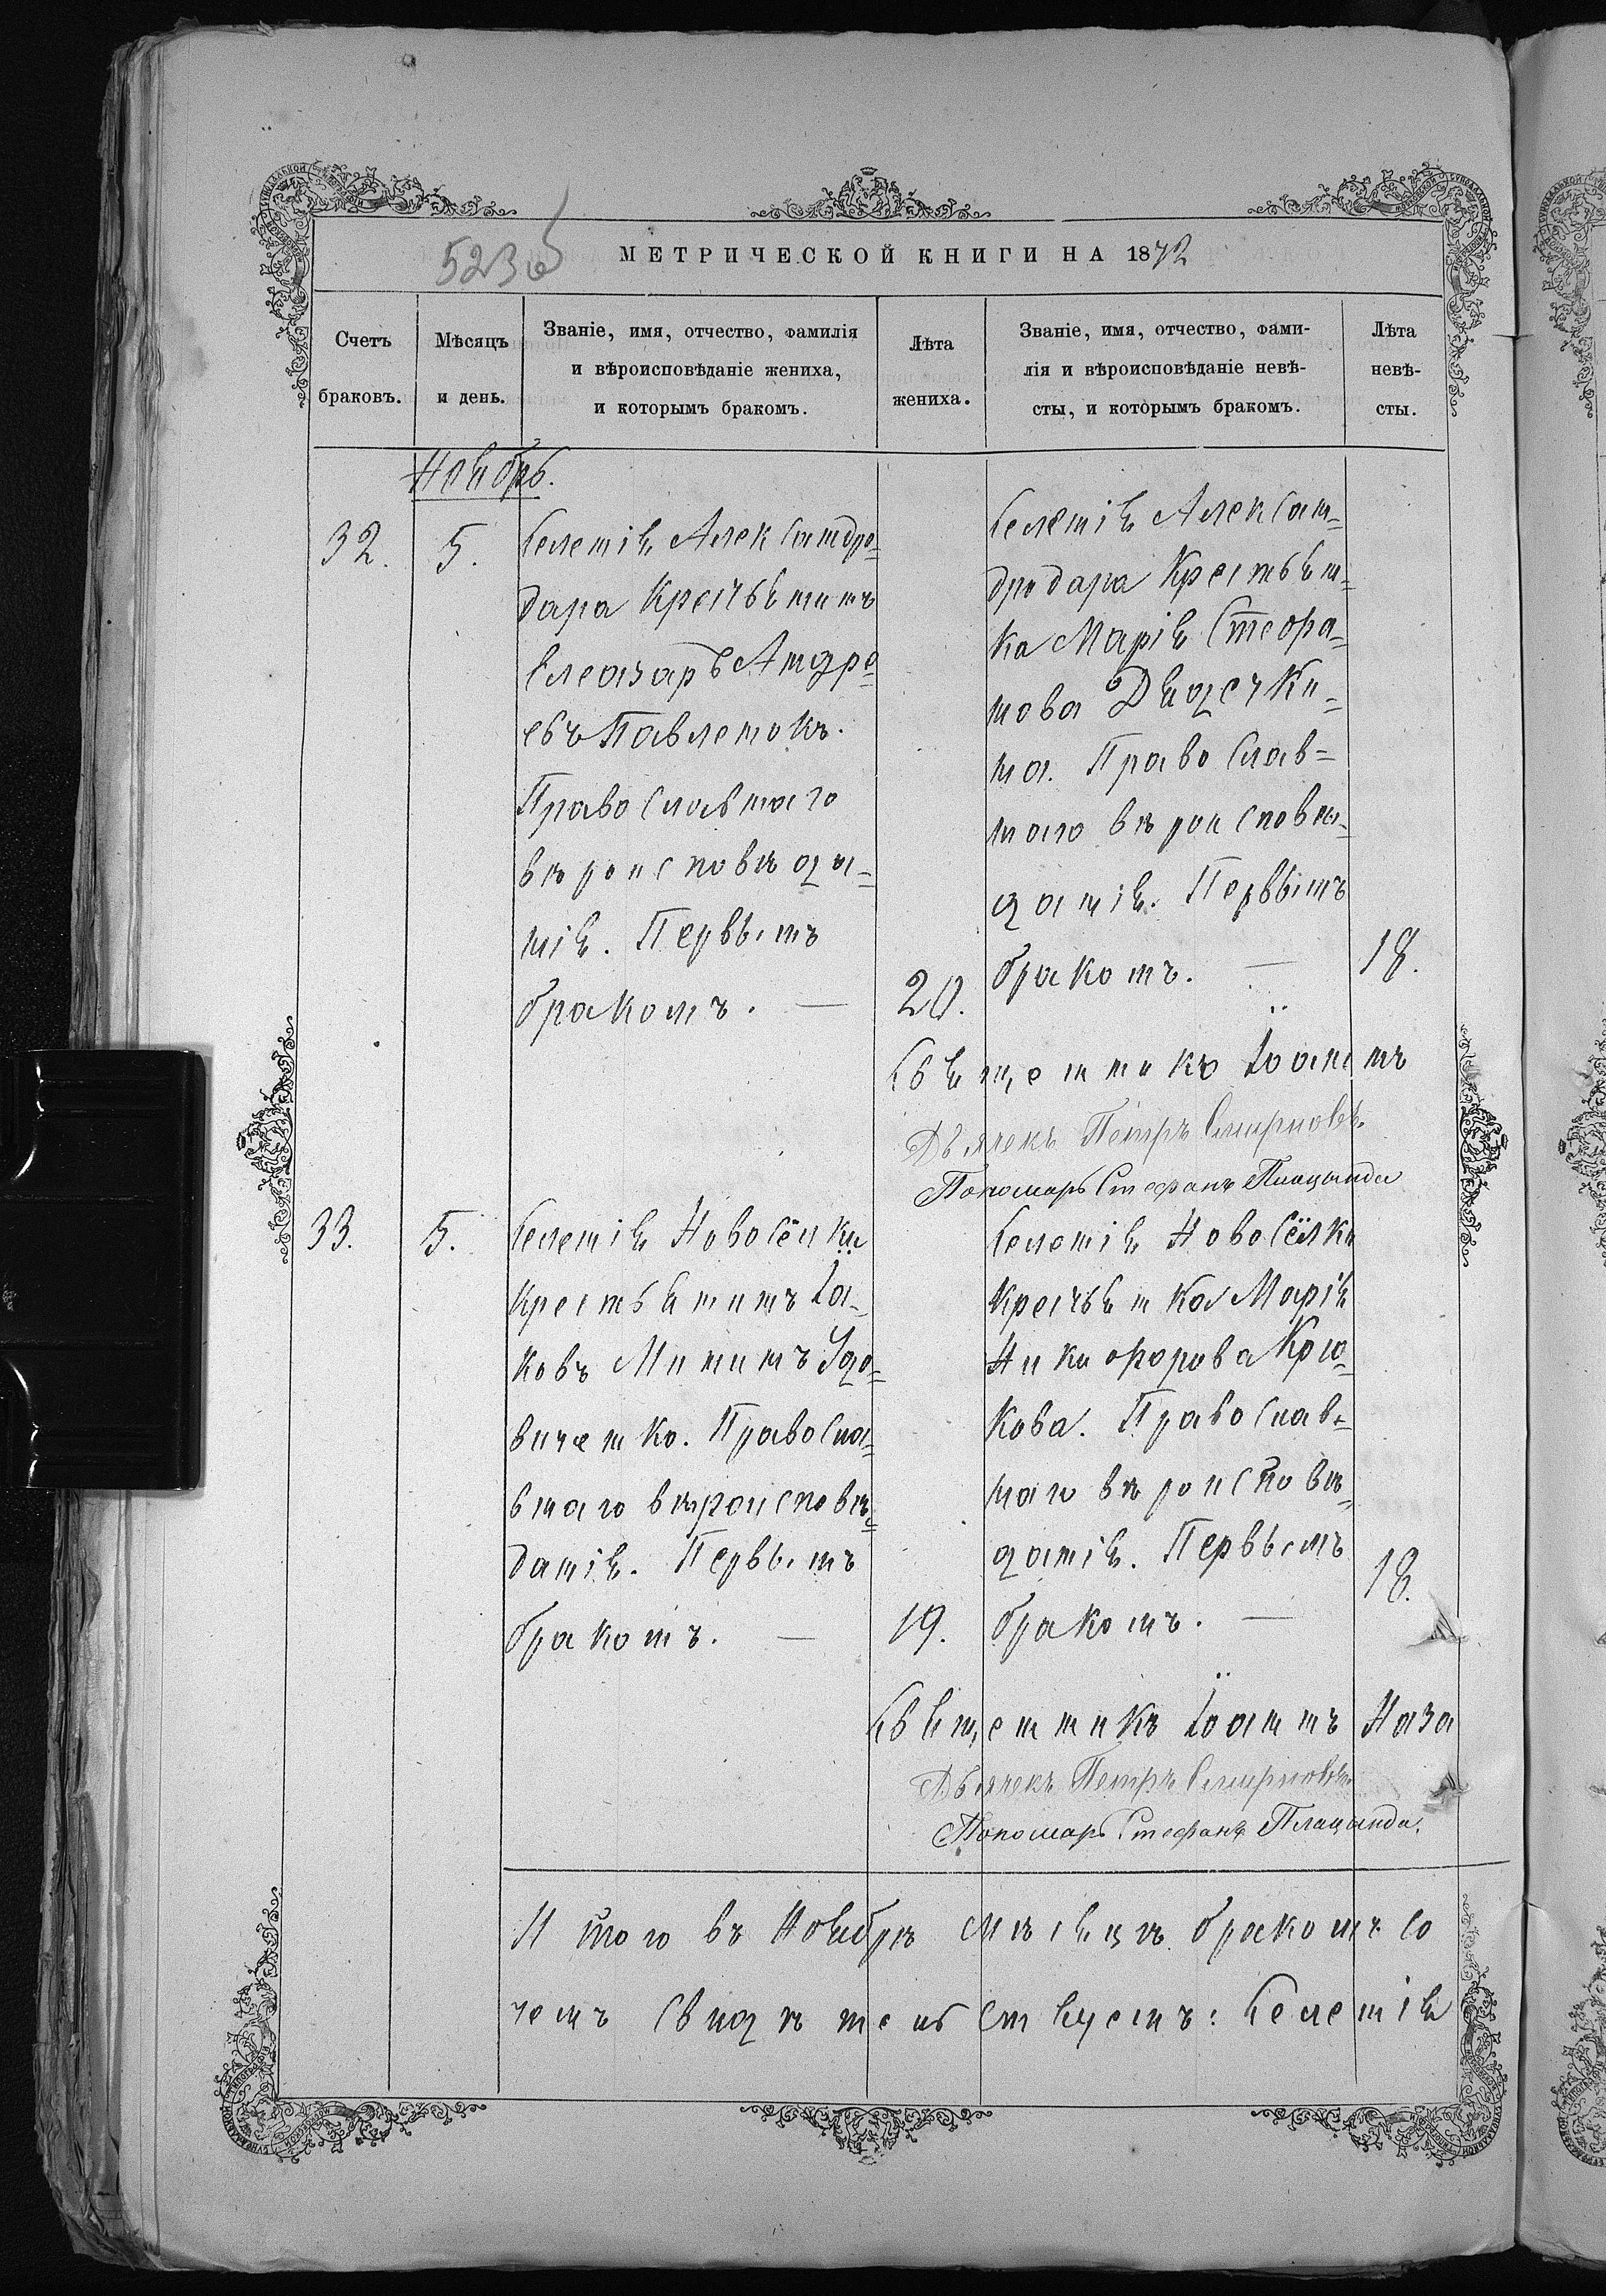 5230
МЕТРИЧЕСКОЙ КНИГИ НА 1872
Счетъ браковъ.
Мѣсяцъ и день.
Званіе, имя, отчество, фамилія
и вѣроисповѣданіе жениха,
и которымъ бракомъ.
Лѣта жениха.
Званіе, имя, отчество, фами-
лія и вѣроисповѣданіе невѣ-
сты, и которымъ бракомъ.
Лѣта невѣ-
сты.
Ноябрь.
32.
5.
Селенія Александро=
дара Крестьянинъ
Елеазаръ Андре=
евъ Павленокъ.
Православнаго
вѣроисповѣда=
нія. Первымъ
бракомъ. —
20.
Селенія Алексан=
дродара Крестьян=
ка Марія Стефа=
нова Дядечки=
на. Православ=
наго вѣроисповѣ=
данія. Первымъ
бракомъ. —
18.
Священникъ Іоаннъ
Дьячекъ Петръ Смирновъ.
Пономарь Стефанъ Плацында
33.
5.
Селенія Новосёлки
Крестьянинъ Іа=
ковъ Мининъ Удо=
виченко. Правосла=
внаго вѣроисповѣ=
данія. Первымъ
бракомъ. —
19.
Селенія Новосёлки
Крестьянка Марія
Никифорова Крю=
кова. Православ=
наго вѣроисповѣ=
данія. Первымъ
бракомъ. —
18.
Священникъ Іоаннъ Наза
Дьячекъ Петръ Смирновъ.
Пономарь Стефанъ Плацында.
Итого въ Ноябрѣ мѣсяцѣ бракомъ со
чемъ свидѣтельствуемъ: Селенія